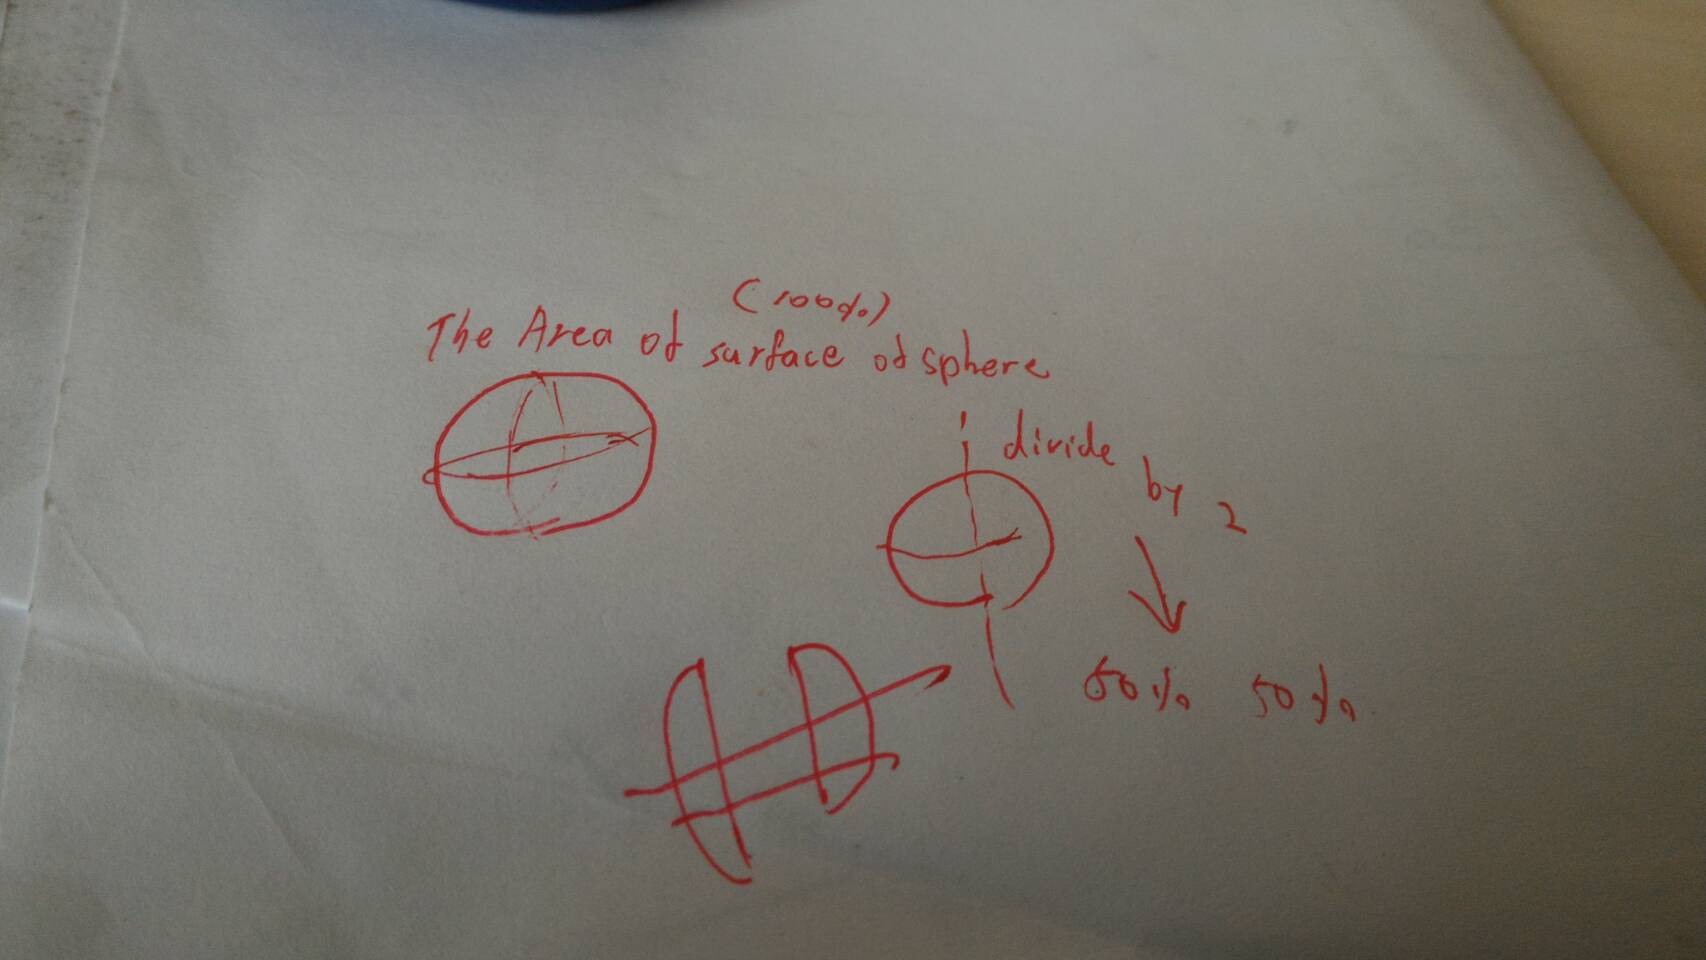 (100%)
The Area of surface of sphere
divide by 2
50% 50%